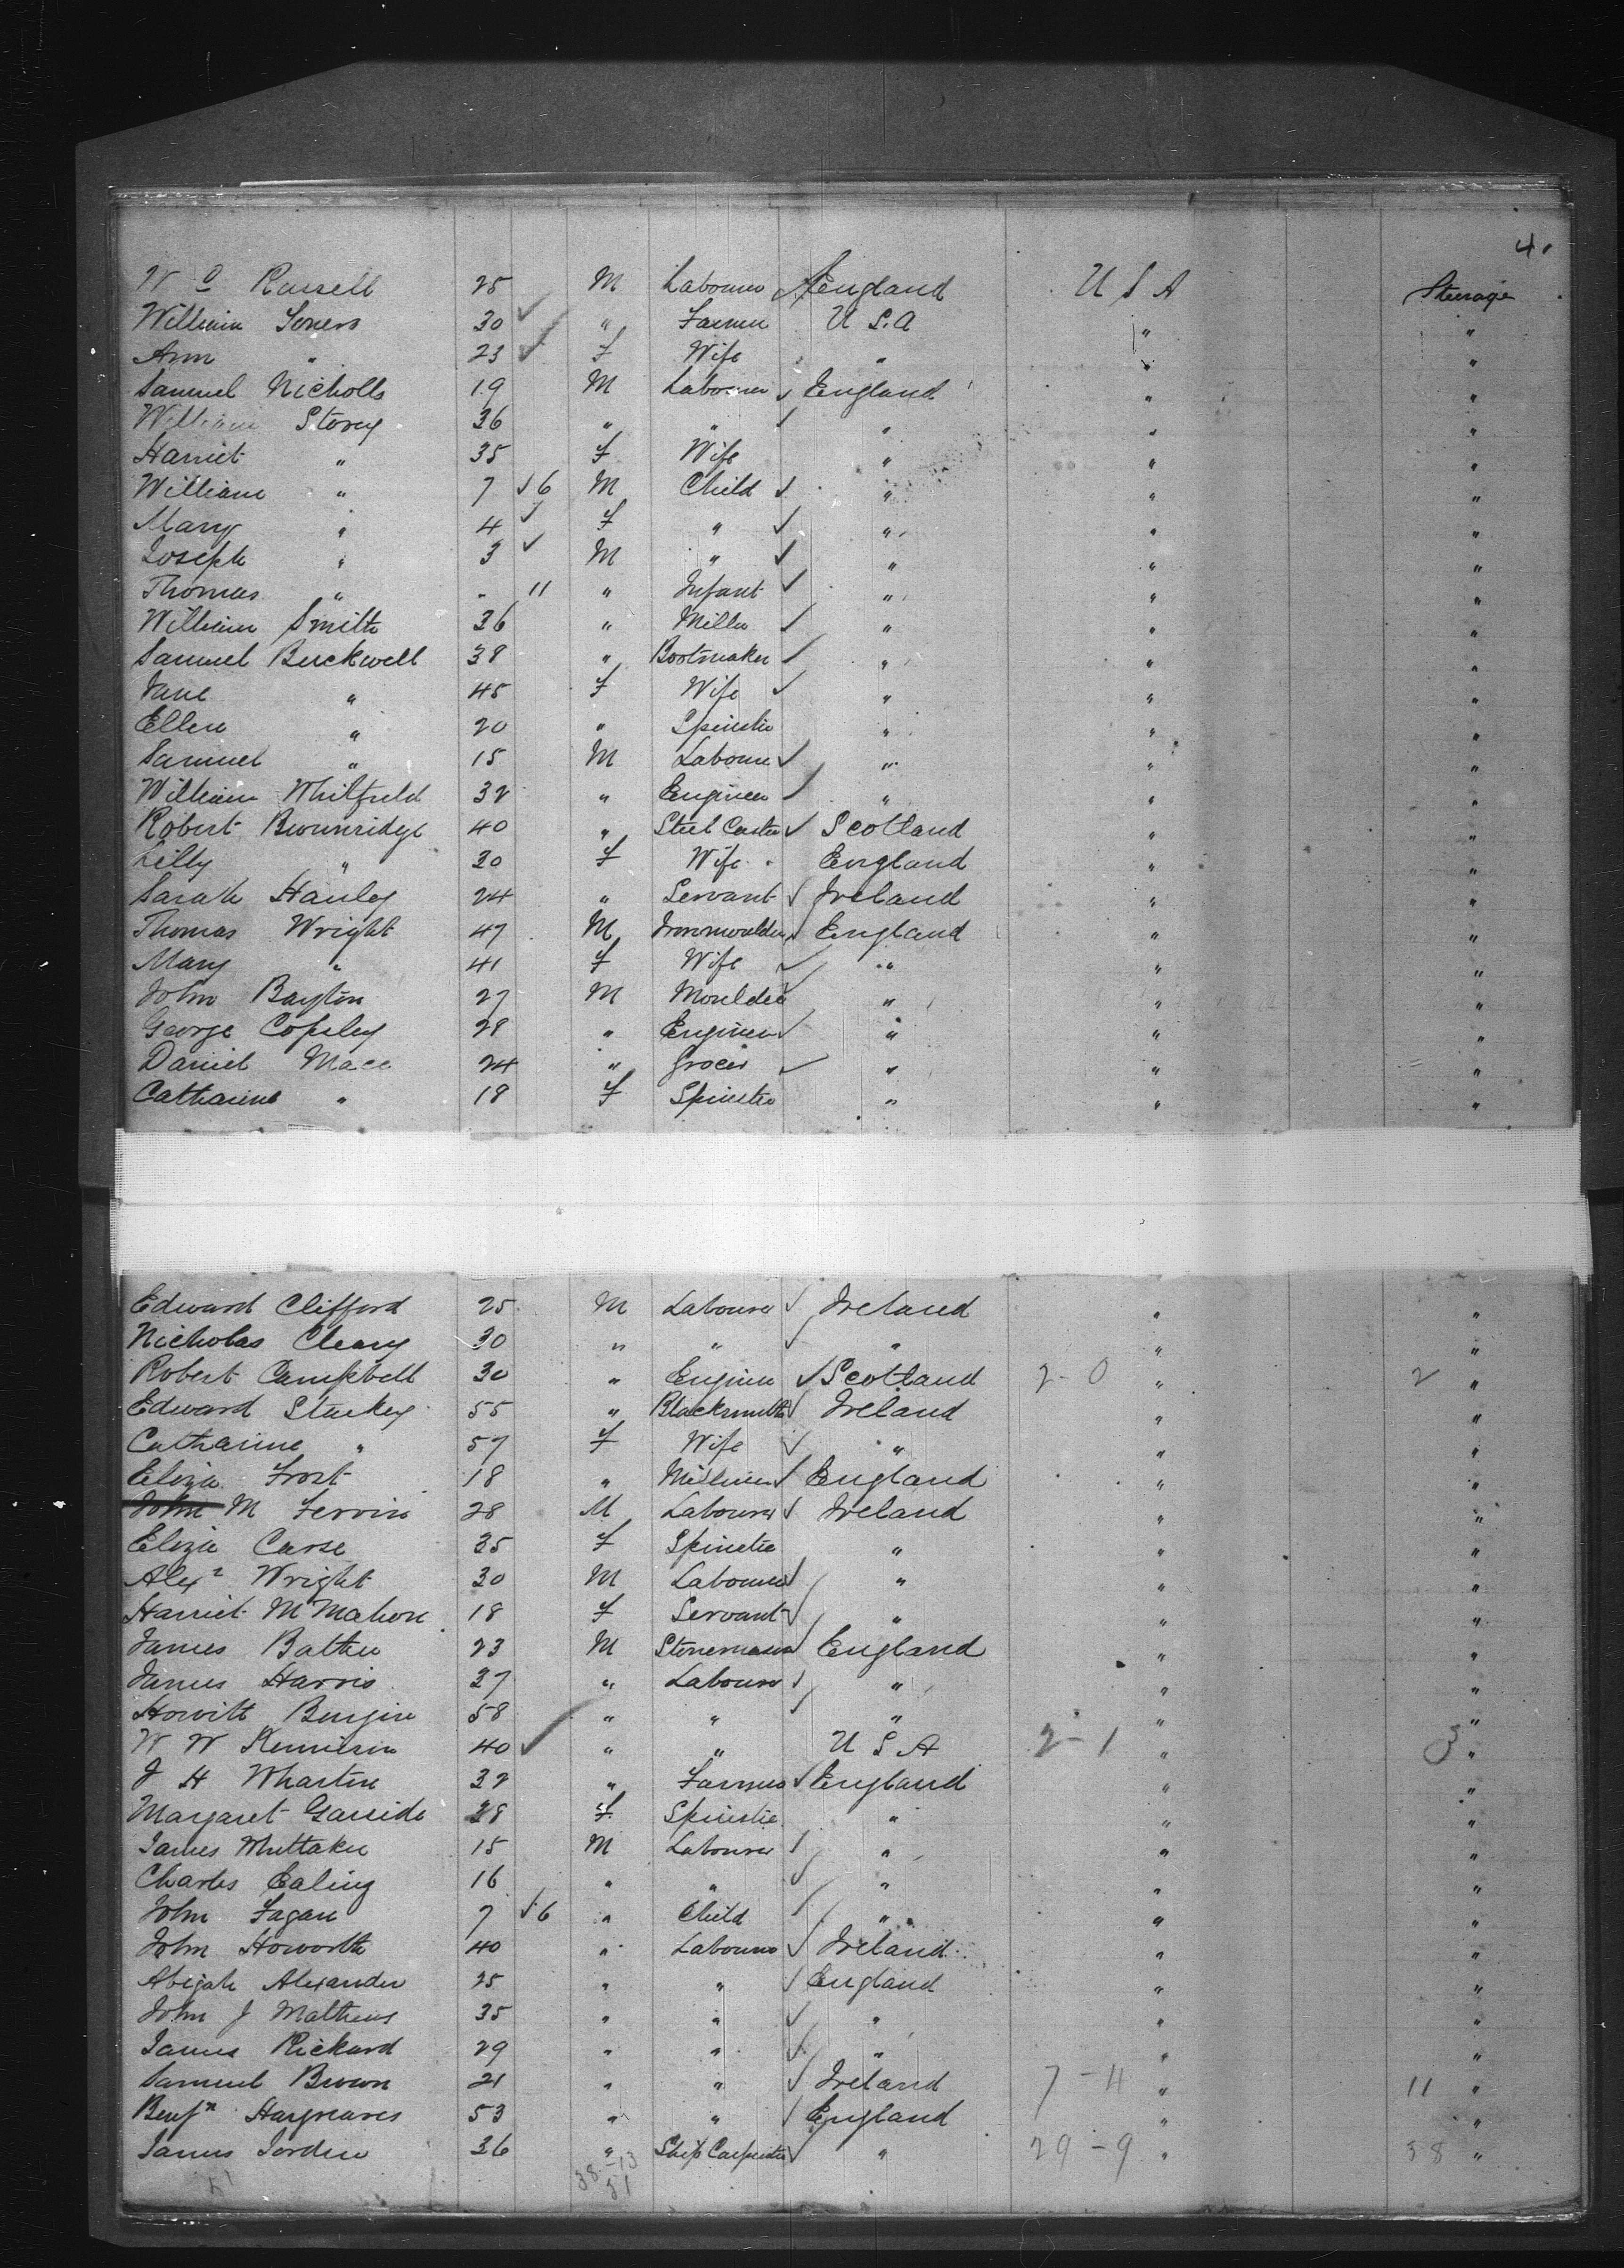 4.
W C Russell 25 M Labourer England U S A Steerage
William Somers 30 " Farmer U S. A " "
Ann " 23 F Wife " " "
Samuel Nicholls 19 M Labourer England " "
William Storey 36 " " " " "
Harriet " 35 F Wife " " "
William " 7 6 M Child " " "
Mary " 4 F " " " "
Joseph " 3 M " " " "
Thomas " - 11 " Infant " " "
William Smith 36 " Miller " " "
Samuel Buckwell 38 " Bootmaker " " "
Jane " 45 F Wife " " "
Ellen " 20 " Spinster " " "
Samuel " 15 M Labourer " " "
William Whitfield 32 " Engineer " " "
Robert Brownridge 40 " Steel Caster Scotland " "
Lilly " 30 F Wife England " "
Sarah Hanley 24 " Servant Ireland " "
Thomas Wright 47 M Ironmoulder England " "
Mary " 41 F Wife " " "
John Bayton 27 M Moulder " " "
George Copsley 28 " Engineer " " "
Daniel Mace 24 " Grocer " " "
Catharine " 18 F Spinster " " "
Edward Clifford 25 M Labourer Ireland " "
Nicholas Cleary 30 " " " " "
Robert Campbell 30 " Engineer Scotland 2-0 " 2 "
Edward Stuckey 55 " Blacksmith Ireland " "
Catharine " 57 F Wife " " "
Eliza Frost 18 " Milliner England " "
John M 28 M Labourer Ireland " "
Eliza Carse 35 F Spinster " " "
Alexr Wright 30 M Labourer " " "
Harriet McMahon 18 F Servant " " "
James 23 M Stonemason England " "
James Harris 37 " Labourer " " "
Howitt 58 " " " " "
W W Kennison 40 " " U S A 2-1 " 3 "
J H Wharton 32 " Farmer England " "
Margaret Garside 28 F Spinster " " "
James Whittaker 15 M Labourer " " "
Charles Ealing 16 " " " " "
John Fagan 7 6 " Child " " "
John Howorth 40 " Labourer Ireland " "
Abijah Alexander 25 " " England " "
John J Mathews 35 " " " " "
James Rickard 29 " " " " "
Samuel Brown 21 " " Ireland 7-4 " 11 "
Benjn Hargreaves 53 " " England " "
James Jorden 36 " Ship Carpenter " 29-9 " 38 "
51 38-13
51